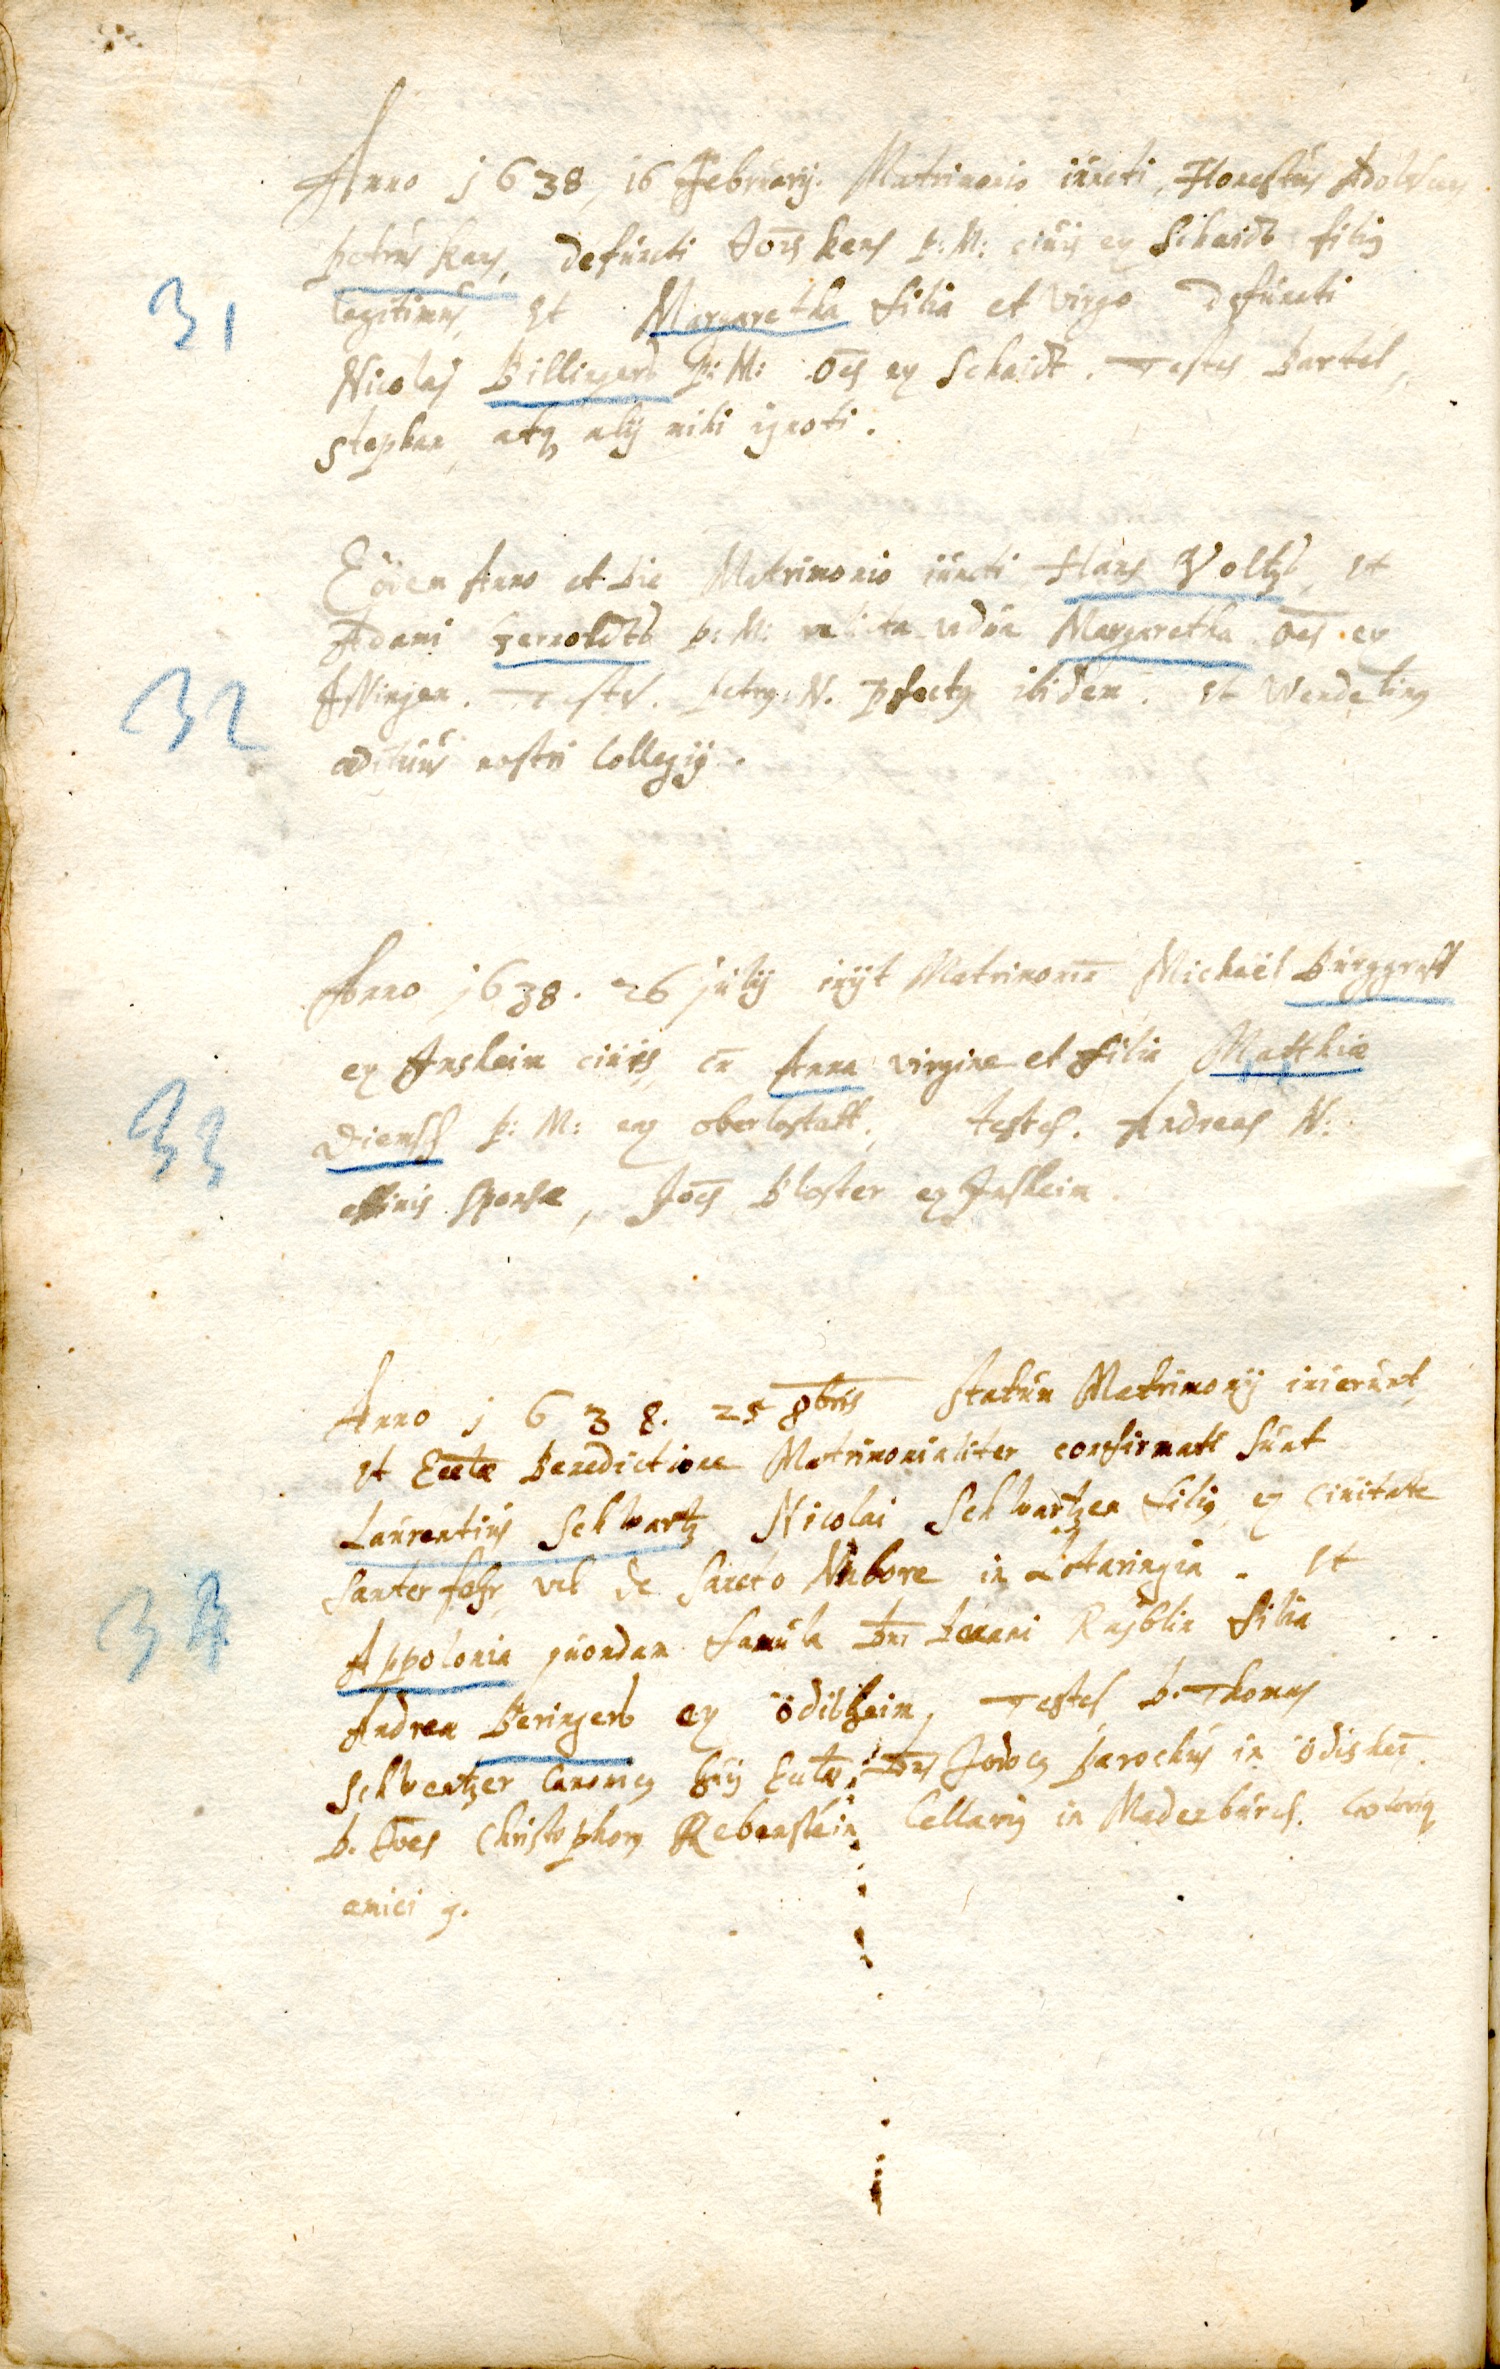 Anno 1638, 16 Februarij. Matrimonio iuncti, Honestus Adolescens
petrus Kays, defuncti Jois Kays p: M: ciuis ex Schaidt filig
31
legitimus, et Margaretha filia et virgo defuncti
Nicolaj Billigers p: M: oes ex Schaidt. Testes Bartel,
Stephan, atq alij mihi ignoti.
Eodem Anno et die Matrimonio iuncti Hans Voltz, et
Adami p: M: relicta vidua Margaretha oes ex
32
Testes. petrg N. ibidem. et Wendeling
ædituus nostri Collegij.
Anno 1638. 26 Julij inijt Matrimoniu Michaël Burggraff
ex Insheim ciuis, cu Anna virgine et filia Matthiæ
33
p: M: ex oberlostatt. testes. Andreas N:
affinis sponsæ, Joes Bloster ex Insheim.
Anno 1638. 25 8bris statum Matrimonij inierunt,
et Ecclæ Benedictione Matrimonialiter confirmati sunt
Laurentius Schwartz Nicolai Schwartzen filig ex Ciuitate
vel de Sancto Nabore in Lotaringia. et
34
Appolonia quondam famula Dni filia
Andreæ Beringers ex Ödisheim, Testes D. Thomas
Schwentzer Canonicg hui9 Ecclæ. Dns Jodocg Parochus in Ödisheim.
D. Joes Christophorg Rebenstein Cellarig in Madenburch.
amici g.